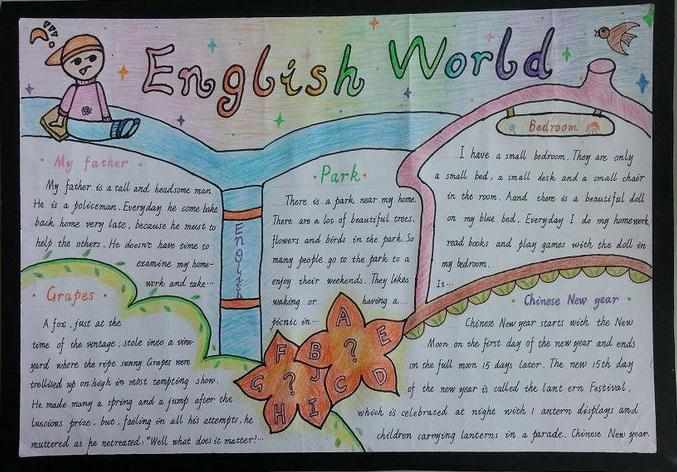 English World
My father
My father is a tall and headsome man.
He is a policeman. Everyday he come bake
back home very late, because he must to
help the others. He doesn't have time to
examine my home-
work and take...
Grapes
A fox, just at the
time of the vintage, stole into a vine-
yard where the ripe sunny Grapes were
trellised up on high in most tempting show.
He made many a spring and a jump after the
luscious prize, but, faeling in all his attempts, he
muttered as he netreated. "Well what does it matter!...
English
Park
There is a park near my home.
There are a lot of beautiful trees,
flowers and birds in the park. So
many people go to the park to a
enjoy their weekends. They likes
waking or having a...
picnic in...
A
B
C
D
E
?
F
G
H
I
J
?
Bedroom
I have a small bedroom. They are only
a small bed, a small desk and a small chair
in the room. Aand there is a beautiful doll
on my blue bed. Everyday I do my homework,
read books and play games with the doll in
my bedroom.
Is...
Chinese New year
Chinese New year starts with the New
Moon on the first day of the new year and ends
on the full moon 15 days later. The new 15th day
of the new year is called the lant ern Festival,
which is celebrated at night with l antern displays and
children carrying lanterns in a parade. Chinese New year.